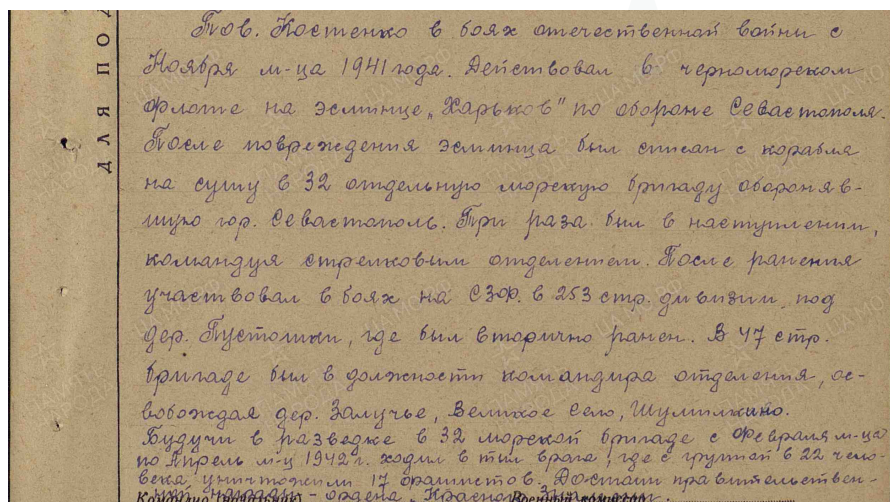 Тов. Костенко в боях отечественной войни с
Ноября м-ца 1941 года. Действовал в черноморском
флоте на эсминце „Харьков" по обороне Севастополя.
После повреждения эсминца был списан с корабля
на сушу в 32 отдельную морскую бригаду обороняв-
шую гор. Севастополь. Три раза был в наступлении,
командуя стрелковым отделением. После ранения
участвовал в боях на СЗФ. в 253 стр. дивизии под
дер. Пустошки, где был вторично ранен. В 47 стр.
бригаде был в должности командира отделения, ос-
вобождая дер. Залучье, Великое село, Шумилкино.
Будучи в разведке в 32 морской бригаде с Февраля м-ца
по Апрель м-ц 1942 г. ходил в тыл врага, где с группой в 22 чело-
века уничтожили 17 фашистов. Достоин правительствен-
ной награды - ордена „Красной
Военный комиссар
ДЛЯ ПОД
ЦАМО.РФ